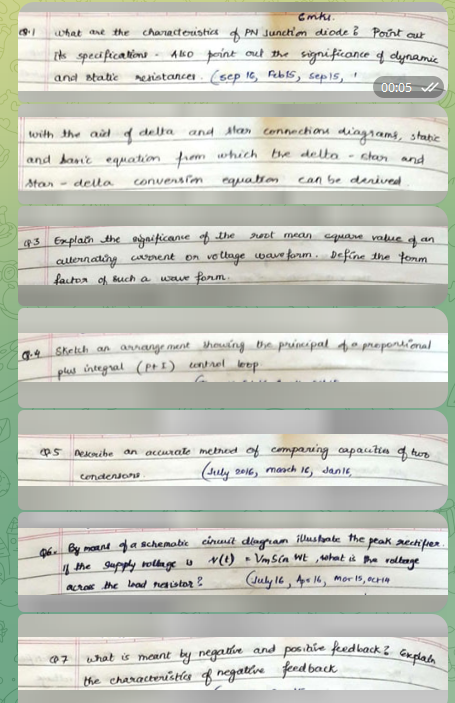 6mks.
Q.1 what are the characteristics of PN Junction diode? Point out
its specifications. Also point out the significance of dynamic
and static resistances. (Sep 16, Feb15, sep15,
00:05
with the aid of delta and star connections diagrams, static
and basic equation from which the delta - star and
star - delta conversion equation can be derived.
Q.3 Explain the significance of the root mean square value of an
alternating current or voltage waveform. Define the form
factor of such a wave form.
Q.4 Sketch an arrangement showing the principal of a proportional
plus integral (P+I) control loop
Q5 Describe an accurate method of comparing capacities of two
condensors. (July 2016, march 16, Jan16
Q6. By means of a schematic circuit diagram illustrate the peak rectifier.
If the supply voltage is V(t) = Vm Sin Wt, what is the voltage
across the load resistor? (July 16, Apr 16, Mar 15, oct 14
Q7 what is meant by negative and positive feedback? Explain
the characteristics of negative feedback